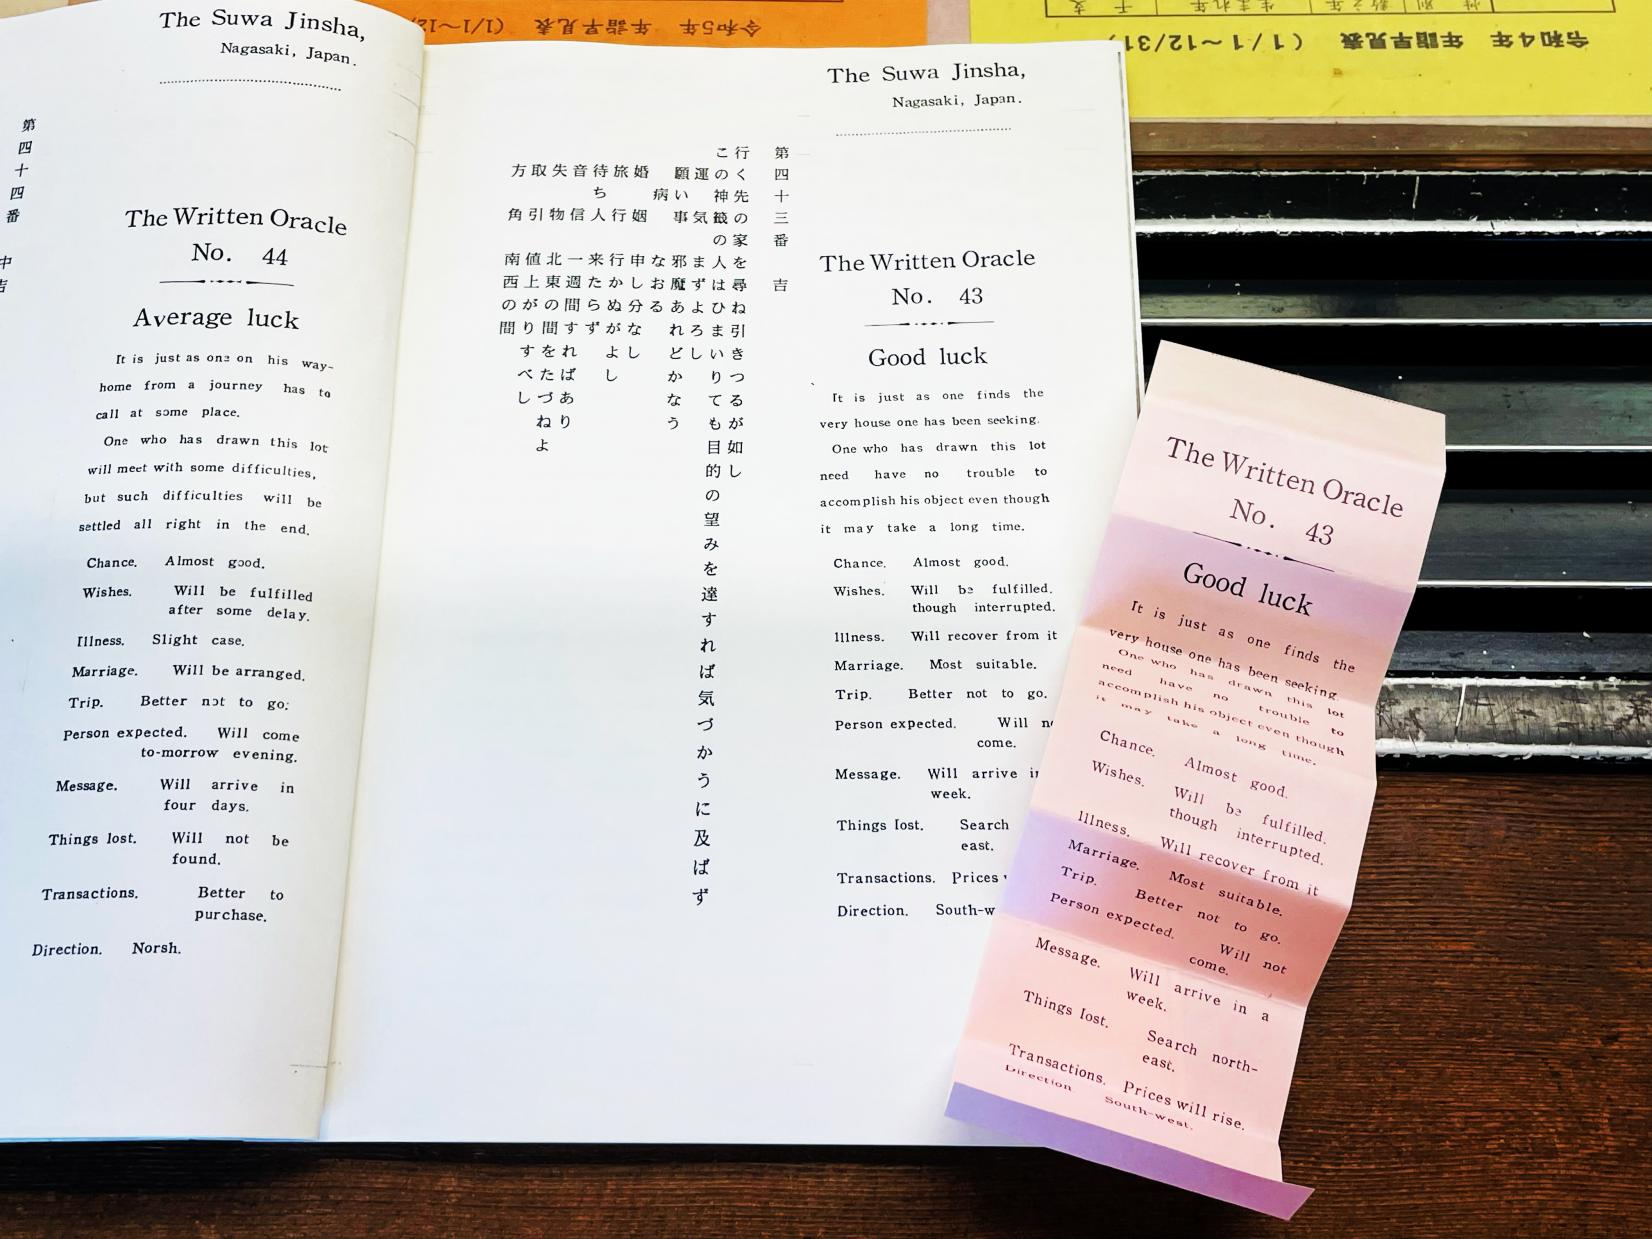 The Suwa Jinsha,
Nagasaki, Japan.
第四十四番 中吉
The Written Oracle
No. 44
Average luck
It is just as one on his way-
home from a journey has to
call at some place.
One who has drawn this lot
will meet with some difficulties,
but such difficulties will be
settled all right in the end.
Chance. Almost good.
Wishes. Will be fulfilled
after some delay.
Illness. Slight case.
Marriage. Will be arranged.
Trip. Better not to go.
Person expected. Will come
to-morrow evening.
Message. Will arrive in
four days.
Things lost. Will not be
found.
Transactions. Better to
purchase.
Direction. Norsh.
The Suwa Jinsha,
Nagasaki, Japan.
第四十三番 吉
行く先の家を尋ね引きつるが如し
この神籤の人はひまいりても目的の望みを達すればきづかうに及ばず
運気 まずよろし
願い事 邪魔あれどかなう
病 なおる
婚姻 申し分なし
旅行 行かぬがよし
待ち人 来たらず
音信 一週間すればあり
失物 北東の間をたづねよ
取引 値上がりすべし
方角 南西の間
The Written Oracle
No. 43
Good luck
It is just as one finds the
very house one has been seeking.
One who has drawn this lot
need have no trouble to
accomplish his object even though
it may take a long time.
Chance. Almost good.
Wishes. Will be fulfilled.
though interrupted.
Illness. Will recover from it
Marriage. Most suitable.
Trip. Better not to go.
Person expected. Will no
come.
Message. Will arrive in
week.
Things lost. Search
east.
Transactions. Prices
Direction. South-w
The Written Oracle
No. 43
Good luck
It is just as one finds the
very house one has been seeking.
One who has drawn this lot
need have no trouble to
accomplish his object even though
it may take a long time.
Chance. Almost good.
Wishes. Will be fulfilled.
though interrupted.
Illness. Will recover from it
Marriage. Most suitable.
Trip. Better not to go.
Person expected. Will not
come.
Message. Will arrive in a
week.
Things lost. Search north-
east.
Transactions. Prices will rise.
Direction South-west.
令和5年 年詣早見表 (1/1～12/
令和4年 年詣早見表 (1/1～12/31)
性別 数え年 生まれ年 干支